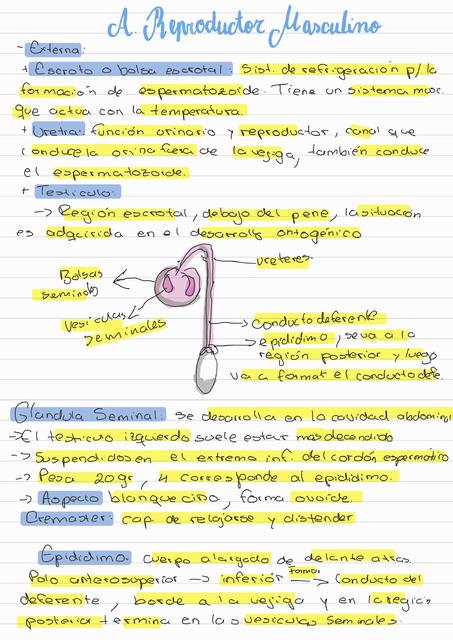 A. Reproductor Masculino
- Externa:
+ Escroto o bolsa escrotal: Sist. de refrigeración p/ la
formación de espermatozoide. Tiene un sistema musc.
que actua con la temperatura.
+ Uretra: función urinario y reproductor, canal que
conduce la orina fuera de la vejiga, también conduce
el espermatozoide.
+ Testiculo:
-> Región escrotal, debajo del pene, la situación
es adquirida en el desarrollo ontogénico
ureteres.
Bolsas
seminales
vesiculas
seminales
conducto deferente
epididimo, se va a la
región posterior y luego
va a format el conducto defe.
Glandula Seminal: se desarrolla en la cavidad abdominal
-> El testiculo izquierdo suele estar mas decendido
-> Suspendidos en el extremo inf. del cordón espermatico
-> Pesa 20gr, 4 corresponde al epididimo.
-> Aspecto blanquecino, forma ovoide.
Cremaster: cap. de relajarse y distender
Epididimo: cuerpo alargado de delante atras.
Polo anterosuperior -> inferior formar -> Conducto del
deferente, borde a la vejiga y en la region
posterior termina en las vesiculas seminales.